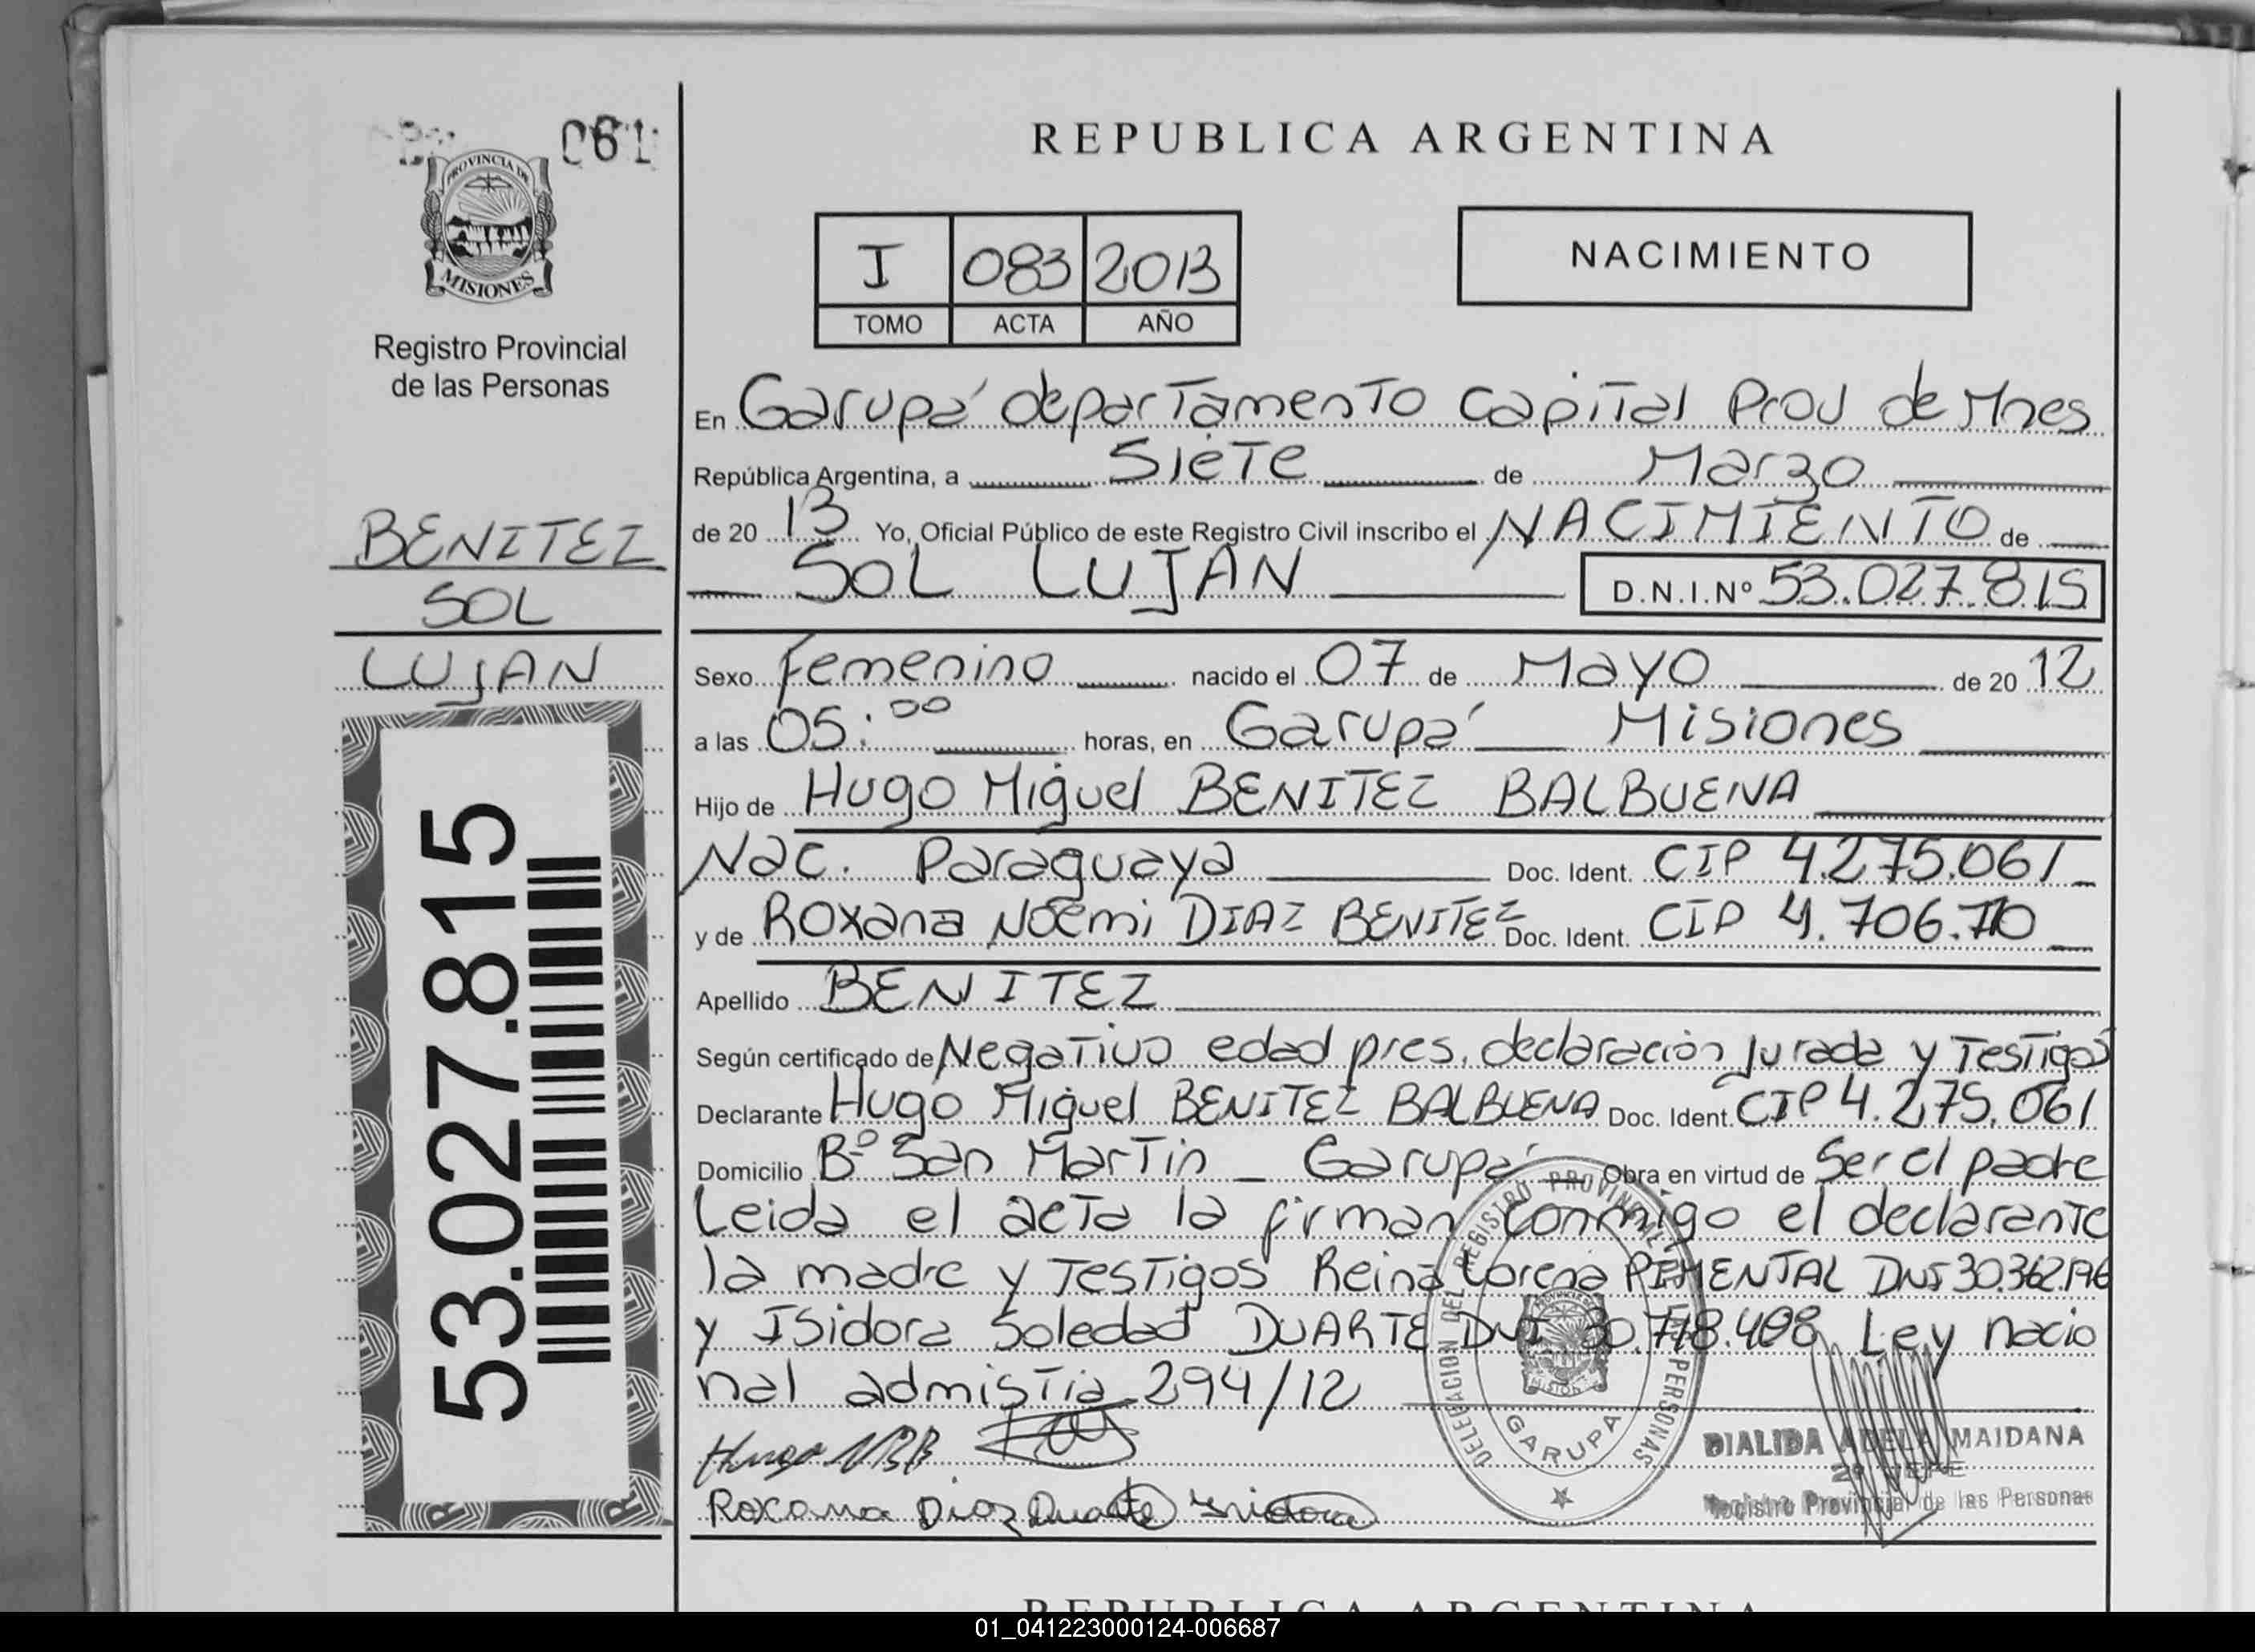 061
PROVINCIA DE
MISIONES
Registro Provincial
de las Personas
BENITEZ
SOL
LUJAN
53.027.815
REPUBLICA ARGENTINA
I 083 2013
TOMO ACTA AÑO
NACIMIENTO
En Garupá departamento Capital Prov de Mnes
República Argentina, a siete de Marzo
de 20 13 Yo, Oficial Público de este Registro Civil inscribo el NACIMIENTO de
SOL LUJAN D.N.I.Nº 53.027.815
Sexo Femenino nacido el 07 de Mayo de 20 12
a las 05:00 horas, en Garupá Misiones
Hijo de Hugo Miguel BENITEZ BALBUENA
Nac. Paraguaya Doc. Ident. CIP 4.275.061
y de Roxana Noemi DIAZ BENITEZ Doc. Ident. CIP 4.706.710
Apellido BENITEZ
Según certificado de Negativo edad pres. declaración Jurada y Testigos
Declarante Hugo Miguel BENITEZ BALBUENA Doc. Ident. CIP 4.275.061
Domicilio Bº San Martin _ Garupá Obra en virtud de Ser el padre
Leida el acta la firman conmigo el declarante
la madre y Testigos Reina Lorena PIMENTAL DNI 30.362.196
y Isidora Soledad DUARTE DNI Ley nacio
nal admistia 294/12
DELEGACION DEL REGISTRO PROVINCIAL DE LAS PERSONAS
GARUPA
Hugo MBB
Roxana Diaz Duarte Isidora
DIALIDA ADELA MAIDANA
2º JEFE
Registro Provincial de las Personas
REPUBLICA ARGENTINA
01_041223000124-006687